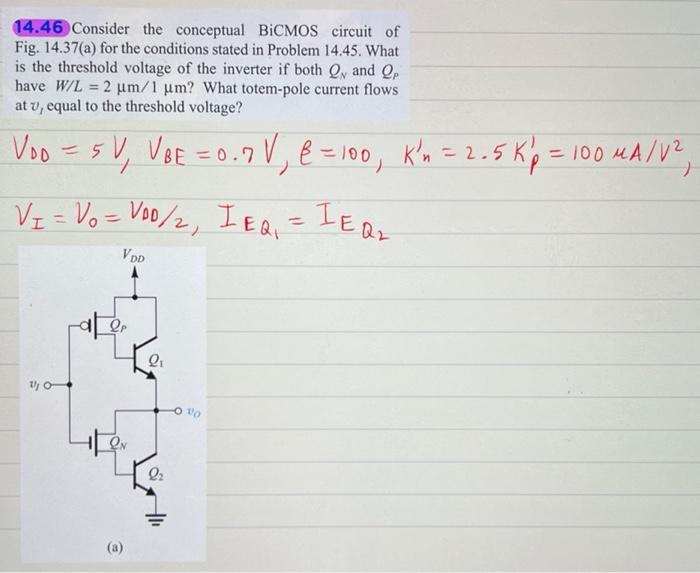 14.46 Consider the conceptual BiCMOS circuit of
Fig. 14.37(a) for the conditions stated in Problem 14.45. What
is the threshold voltage of the inverter if both Q_N and Q_P
have W/L = 2 μm/1 μm? What totem-pole current flows
at v_I equal to the threshold voltage?
V_DD = 5 V, V_BE = 0.7 V, β = 100, K'n = 2.5 K'p = 100 μA/V²,
V_I = V_o = V_DD/2, I_EQ₁ = I_EQ₂
V_DD
Q_P
Q₁
v_I
v_O
Q_N
Q₂
(a)